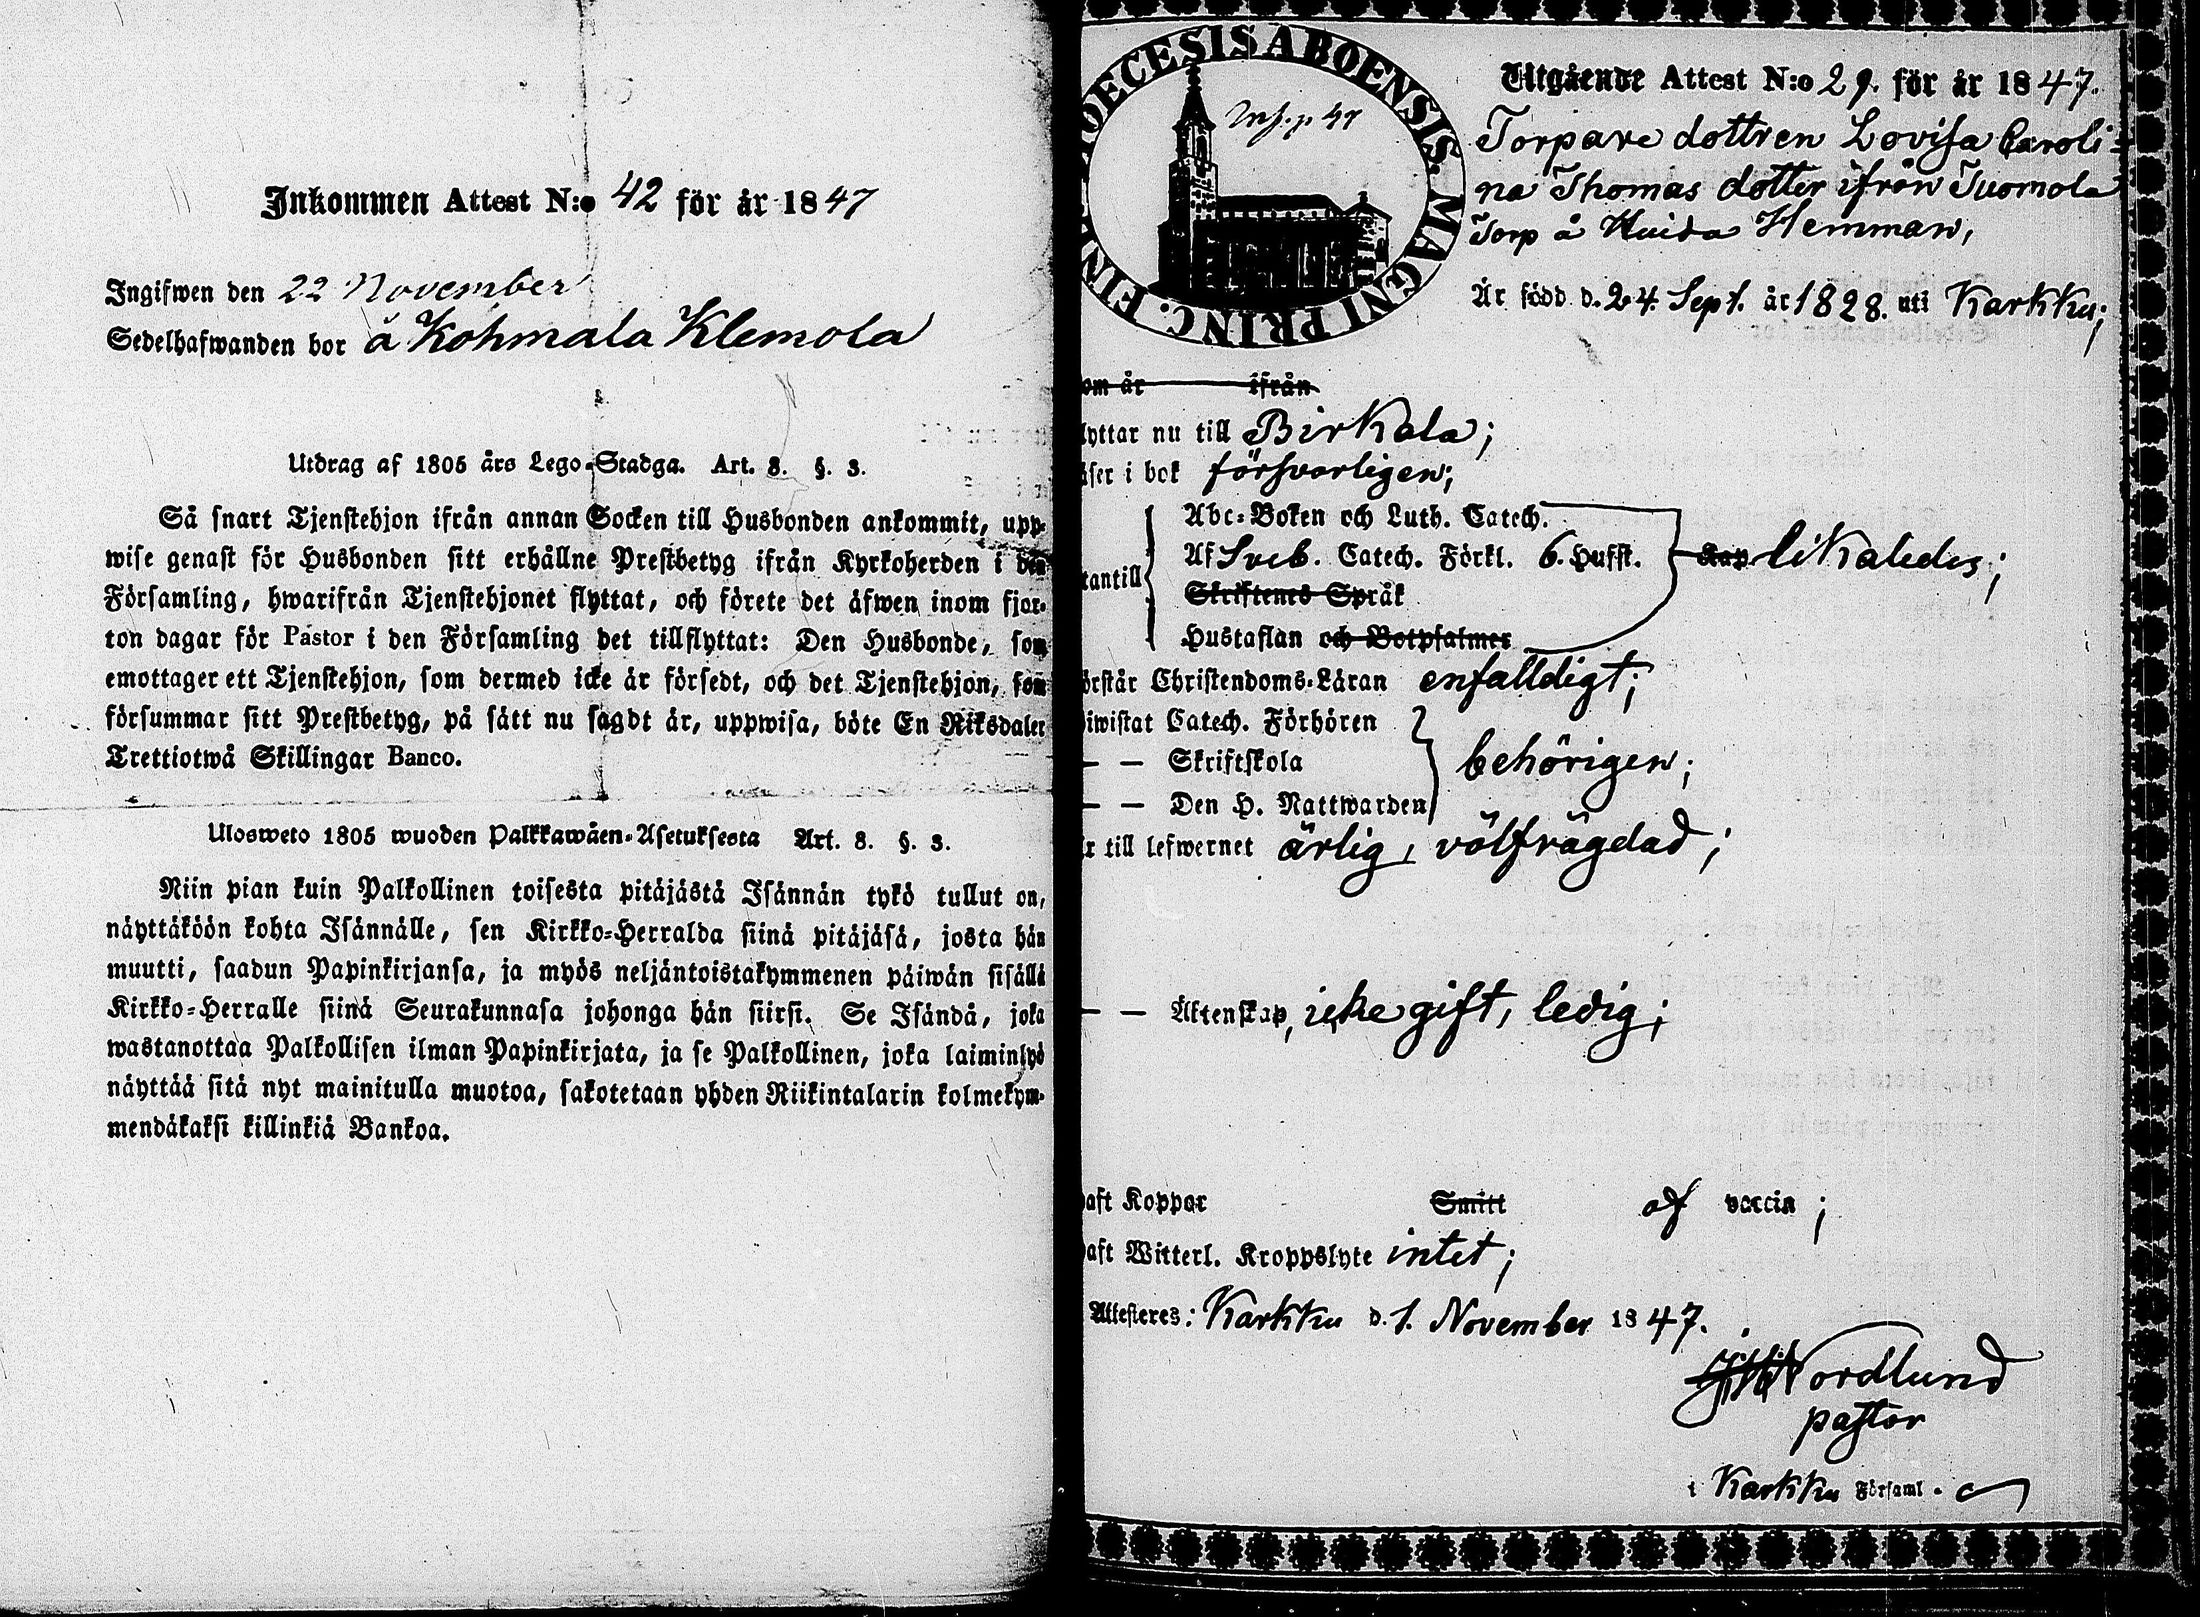 Inkommen Attest N:o 42 för år 1847
Ingifwen den 22 November
Sedelhafwanden bor å Kohmala Klemola
Utdrag af 1805 års Lego-Stadga. Art. 8. §. 3.
Så snart Tjenstehjon ifrån annan Socken till Husbonden ankommit, upp-
wise genast för Husbonden sitt erhållne Prestbetyg ifrån Kyrkoherden i den
Församling, hwarifrån Tjenstehjonet flyttat, och förete det äfwen inom fjor-
ton dagar för Pastor i den Församling det tillflyttat: Den Husbonde, som
emottager ett Tjenstehjon, som dermed icke är försedt, och det Tjenstehjon, som
försummar sitt Prestbetyg, på sätt nu sagdt är, uppwisa, böte En Riksdaler
Trettiotwå Skillingar Banco.
Ulosweto 1805 wuoden Palkkawäen-Asetuksesta Art. 8. §. 3.
Niin pian kuin Palkollinen toisesta pitäjästä Isännän tykö tullut on,
näyttäköön kohta Isännälle, sen Kirkko-Herralda siinä pitäjäsä, josta hän
muutti, saadun Papinkirjansa, ja myös neljäntoistakymmenen päiwän sisällä
Kirkko-Herralle siinä Seurakunnasa johonga hän siirsi. Se Isändä, joka
wastanottaa Palkollisen ilman Papinkirjata, ja se Palkollinen, joka laiminlyö
näyttää sitä nyt mainitulla muotoa, sakotetaan yhden Riikintalarin kolmekym-
mendäkaksi killinkiä Bankoa.
DIOECESIS ABOENSIS. MAGNI PRINC. FIN
Inf. p. 47
Utgående Attest N:o 29. för år 1847.
Torpare dottren Lovisa Caroli-
na Thomas dotter ifrån Tuomola
Torp å Huida Hemman,
Är född d. 24. Sept. år 1828. uti Karkku;
om år ifrån
lyttar nu till Birkala;
äser i bok försvarligen;
Abc-Boken och Luth. Catech.
Af Sveb. Catech. Förkl. 6. Hufst. likaledes;
tantill
Skriftenes Språk
Hustaflan och Botpsalmer
örstår Christendoms-Läran enfalldigt;
iwistat Catech. Förhören
— — Skriftskola behörigen;
— — Den H. Nattwarden
r till lefwernet ärlig, välfrägdad;
— — Äktenskap, icke gift, ledig;
aft Koppor Smitt af vaccin;
aft Witterl. Kroppslyte intet;
Attesteres: Karkku d. 1. November 1847.
Nordlund
pastor
i Karkku Församl.